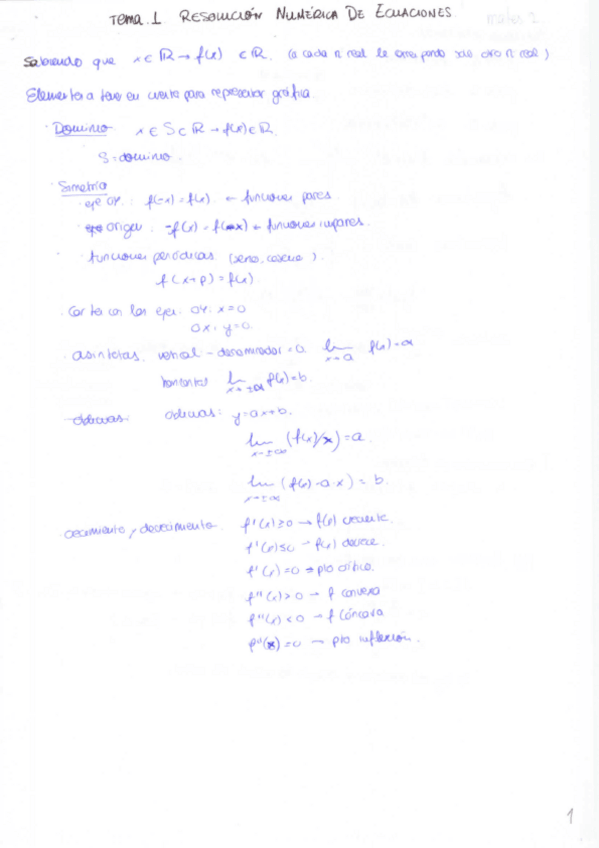 Tema.1 RESOLUCIÓN NUMÉRICA DE ECUACIONES
Sabiendo que x∈ℝ → f(x) ∈ℝ. (a cada n real le corresponde otro n real)
Elementos a tener en cuenta para representar gráfica
· Dominio x∈S⊂ℝ → f(x)∈ℝ.
S=dominio.
· Simetría
· eje OY: f(-x)=f(x) ← funciones pares.
· origen: -f(x)=f(-x) ← funciones impares.
· funciones periódicas (seno, coseno).
f(x+p)=f(x)
· Corte con los ejes: OY: x=0
OX: y=0.
· asíntotas: vertical - denominador=0. lim x→a f(x)=∞
horizontal lim x→±∞ f(x)=b.
oblicuas: y=ax+b.
lim x→±∞ (f(x)/x)=a.
lim x→±∞ (f(x)-a·x)=b.
· crecimiento y decrecimiento. f'(x)≥0 → f(x) creciente.
f'(x)≤0 → f(x) decrece.
f'(x)=0 ⇒ pto crítico.
f''(x)>0 → f convexa
f''(x)<0 → f cóncava
f''(x)=0 → pto inflexión.
1